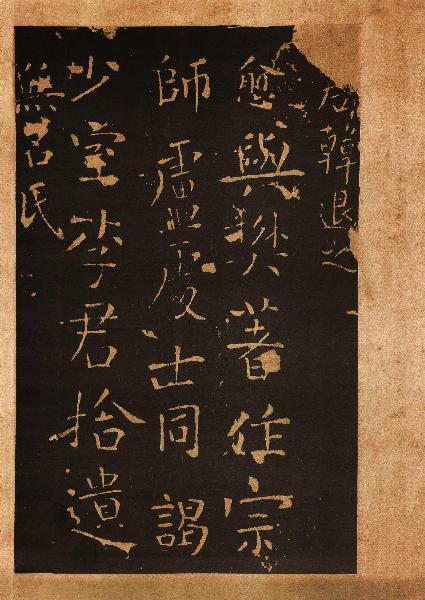 韓退之
愈與樊著作宗
師盧處士同謁
少室李君拾遺
無名氏